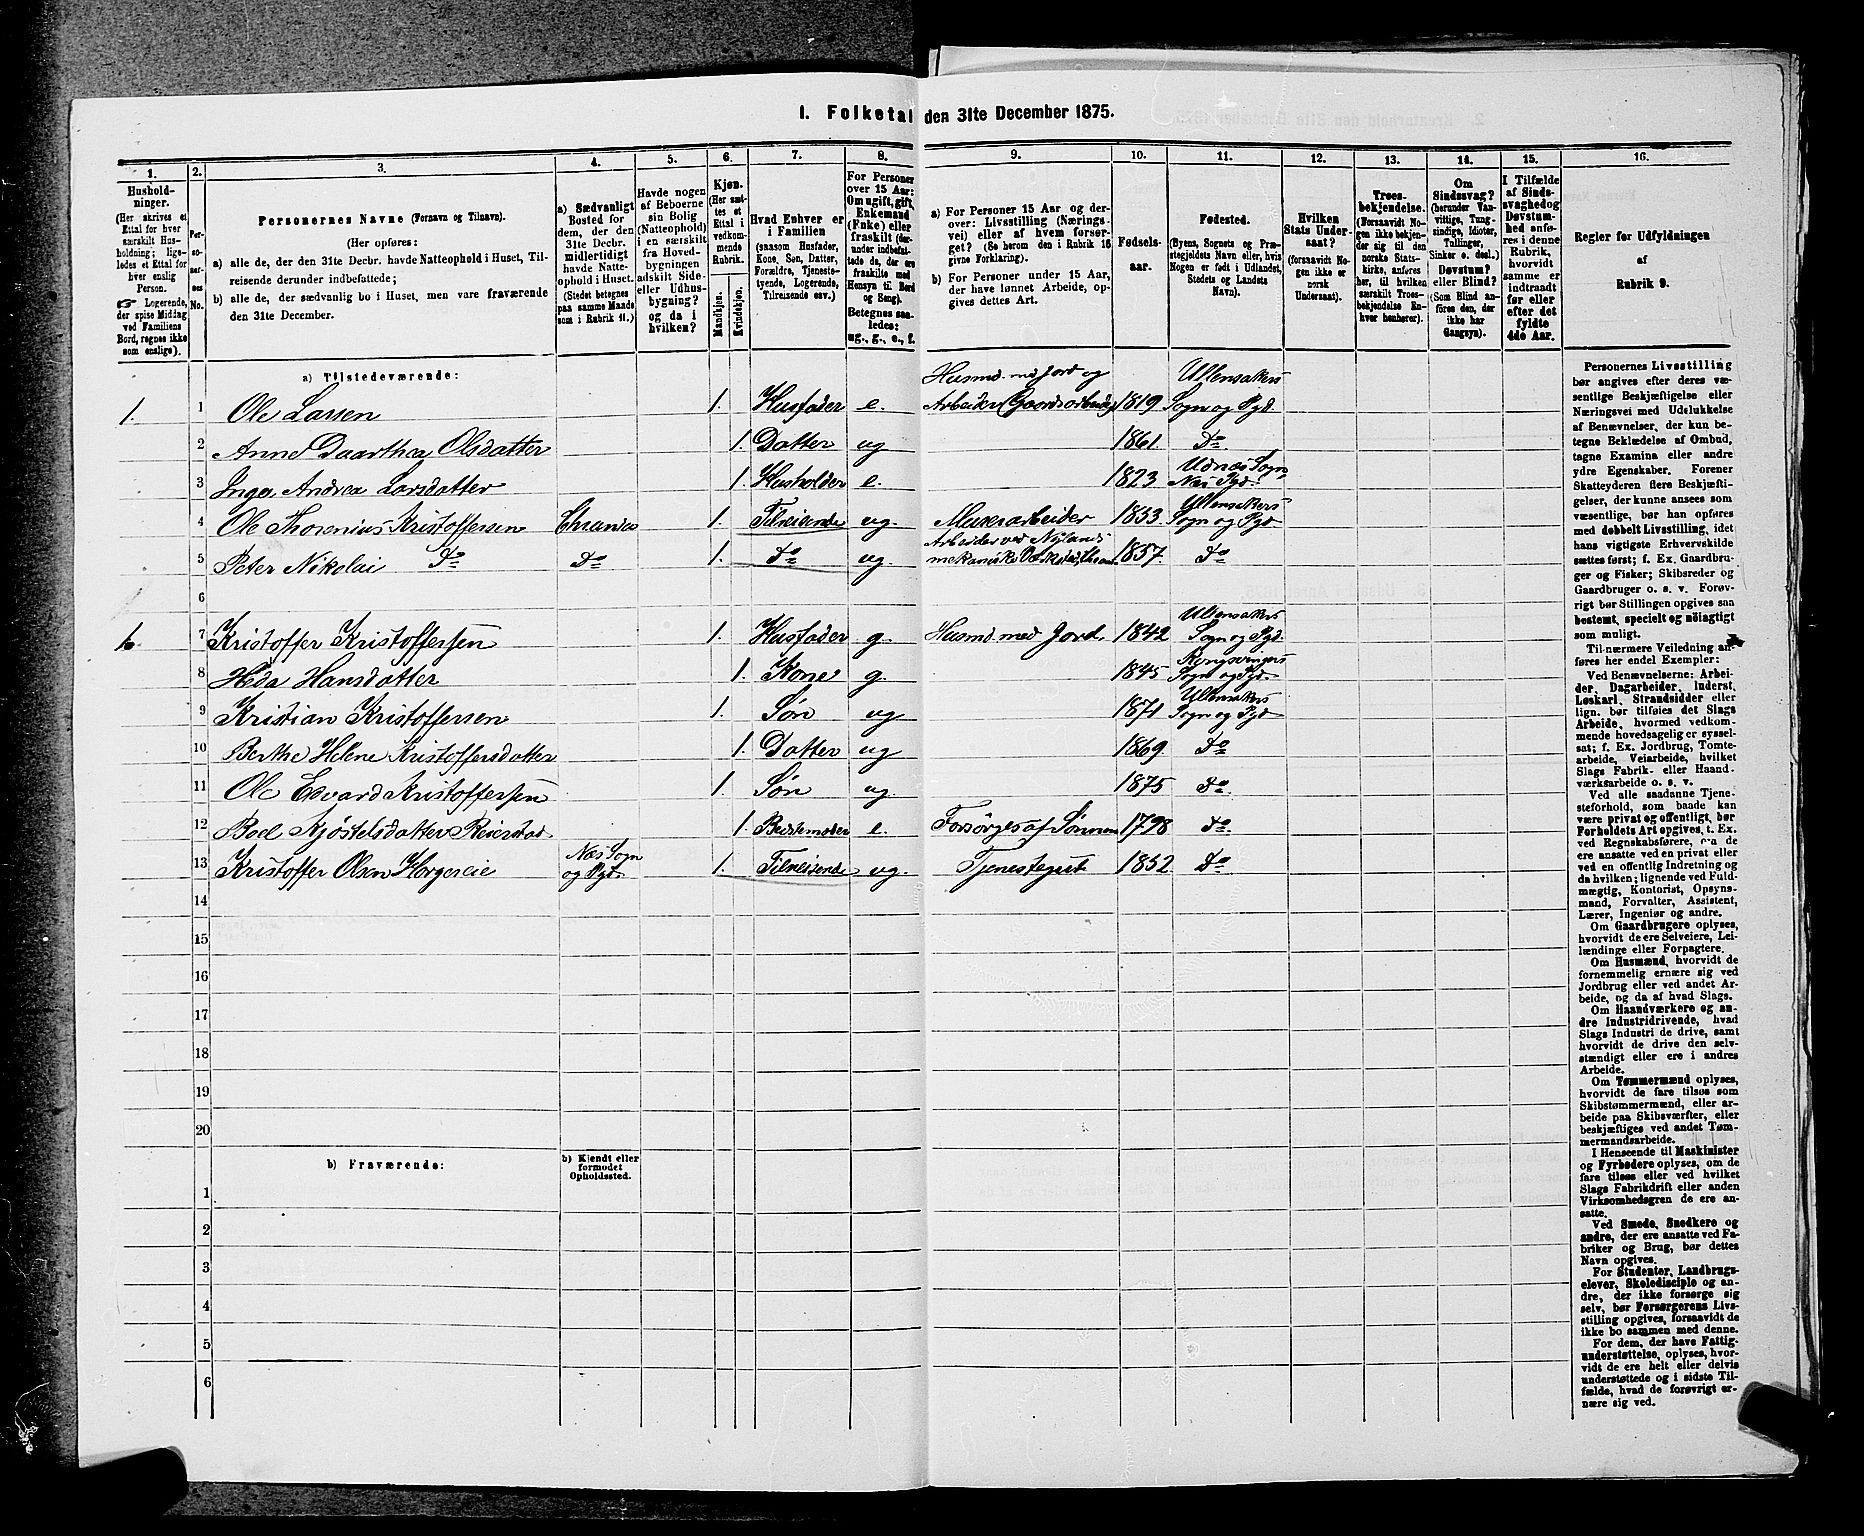 1. Folketal den 31te December 1875.
1. 2. 3. 4. 5. 6. 7. 8. 9. 10. 11. 12. 13. 14. 15. 16.
Hushold-
ninger.
(Her skrives et
Ettal for hver
særskilt Hus-
holdning; lige-
ledes et Ettal for
hver enslig
Person.
☞ Logerende,
der spise Middag
ved Familiens
Bord, regnes ikke
som enslige).
Per-
so-
ner-
nes
No.
Personernes Navne (Fornavn og Tilnavn).
(Her opføres:
a) alle de, der den 31te Decbr. havde Natteophold i Huset, Til-
reisende derunder indbefattede;
b) alle de, der sædvanlig bo i Huset, men vare fraværende
den 31te December.
a) Sædvanligt
Bosted for
dem, der den
31te Decbr.
midlertidigt
havde Natte-
ophold i Huset.
(Stedet betegnes
paa samme Maade
som i Rubrik 11.)
Havde nogen
af Beboerne
sin Bolig
(Natteophold)
i en særskilt
fra Hoved-
bygningen
adskilt Side-
eller Udhus-
bygning?
og da i
hvilken?
Kjøn.
(Her sæt-
tes et
Ettal i
vedkom-
mende
Rubrik.
Mandkjøn.
Kvindekjøn.
Hvad Enhver er
i Familien
(saasom Husfader,
Kone, Søn, Datter,
Forældre, Tjeneste-
tyende, Logerende,
Tilreisende osv.)
For Personer
over 15 Aar:
Om ugift, gift,
Enkemand
(Enke) eller
fraskilt (der-
under indbefat-
tede da, der ere
fraskilte med
Hensyn til Bord
og Seng).
Betegnes saa-
ledes:
ug., g., e., f.
a) For Personer 15 Aar og der-
over: Livsstilling (Nærings-
vei) eller af hvem forsør-
get? (Se herom den i Rubrik 16
givne Forklaring).
b) For Personer under 15 Aar,
der have lønnet Arbeide, op-
gives dettes Art.
Fødsels-
aar.
Fødested.
(Byens, Sognets og Præ-
stegjeldets Navn, eller hvis
Nogen er født i Udlandet,
Stedets og Landets
Navn).
Hvilken
Stats Under-
saat?
(forsaavidt No-
gen ikke er
norsk
Undersaat).
Troes-
bekjendelse.
(Forsaavidt No-
gen ikke bekjen-
der sig til den
norske Stats-
kirke, anføres
her, til hvilken
særskilt Troes-
bekjendelse En-
hver henhører).
Om
Sindssvag?
(herunder Van-
vittige, Tung-
sindige, Idioter,
Tullinger,
Sinker o. desl.)
Døvstum?
eller Blind?
(Som Blind an-
føres den, der
ikke har
Gangsyn).
I Tilfælde
af Sinds-
svaghed og
Døvstum-
hed anfø-
res i denne
Rubrik,
hvorvidt
samme er
indtraadt
før eller
efter det
fyldte
4de Aar.
Regler for Udfyldningen
af
Rubrik 9.
a) Tilstedeværende:
1. 1 Ole Larsen 1. Husfader e. Husmd. med Jord og Arbeider (Gaardsarbeide) 1819 Ullensakers Sogn og Pgd.
2 Anne Daarthea Olsdatter 1. Datter ug 1861. Do
3 Inga Andrea Larsdatter 1. Husholder e. 1823 Udnæs Sogn Næs Pgd.
4 Ole Thorenius Kristoffersen Chrania 1. Tilreisende ug. Murerarbeider 1853. Ullensakers Sogn og Pgd
5 Peter Nikolai Do Do 1. Do ug. Arbeider ved Nylands mekaniske Værksted, 1857. Do
6
1. 7 Kristoffer Kristoffersen 1. Husfader g. Husmd. med Jord. 1842 Ullensakers Sogn og Pgd.
8 Hansdatter 1. Kone g. 1845 Kongsvingers Sogn og Pgd.
9 Kristian Kristoffersen 1. Søn ug 1871 Ullensakers Sogn og Pgd
10 Berthe Helene Kristoffersdatter 1. Datter ug 1869. Do
11 Ole Edvard Kristoffersen 1. Søn ug. 1875 Do
12 Boel Kjøstelsdatter Reierstad 1. Bedstemoder e. Forsørges af Sønnen 1798 Do
13 Kristoffer Olsen Horgereie Næs Sogn og Pgd. 1. Tilreisende ug. Tjenestegut 1852 Do
14
15
16
17
18
19
20
b) Fraværende:
b) Kjendt eller
formodet
Opholdssted.
1
2
3
4
5
6
Personernes Livsstilling
bør angives efter deres væ-
sentlige Beskjæftigelse eller
Næringsvei med Udelukkelse
af Benævnelser, der kun be-
tegne Beklædelse af Ombud,
tagne Examina eller andre
ydre Egenskaber. Forener
Skatteyderen flere Beskjæfti-
gelser, der kunne ansees som
væsentlige, bør han opføres
med dobbelt Livsstilling, idet
hans vigtigste Erhvervskilde
sættes først; f. Ex. Gaardbru-
ger og Fisker; Skibsreder og
Gaardbruger o. s. v. Forøv-
rigt bør Stillingen opgives saa
bestemt, specielt og nölagtigt
som muligt.
Til nærmere Veiledning an-
føres her endel Exempler:
Ved Benævnelserne: Arbei-
der, Dagarbeider, Inderst,
Løskarl, Strandsidder eller
lign. bør tilføies det Slags
Arbeide, hvormed vedkom-
mende hovedsagelig er syssel-
sat; f. Ex. Jordbrug, Tomte-
arbeide, Veiarbeide, hvilket
Slags Fabrik- eller Haand-
værksarbeide o. s. v.
Ved alle saadanne Tjene-
steforhold, som baade kan
være privat og offentligt, bør
Forholdets Art opgives, t. Ex.
ved Regnskabsførere, om de
ere ansatte ved en privat eller
en offentlig Indretning og
da hvilken; lignende ved Fuld-
mægtig, Kontorist, Opsyns-
mand, Forvalter, Assistent,
Lærer, Ingeniør og andre.
Om Gaardbrugere oplyses,
hvorvidt de ere Selveiere, Lei-
lændinge eller Forpagtere.
Om Husmænd, hvorvidt de
fornemmelig ernære sig ved
Jordbrug eller ved andet Ar-
beide, og da af hvad Slags.
Om Haandværkere og an-
dre Industridrivende, hvad
Slags Industri de drive, samt
hvorvidt de drive den selv-
stændigt eller ere i andres
Arbeide.
Om Tømmermænd oplyses,
hvorvidt de fare tilsøs som
Skibstømmermænd, eller ar-
beide paa Skibsværfter, eller
beskjæftiges ved andet Tøm-
mermandsarbeide.
I Henseende til Maskinister
og Fyrbødere oplyses, om de
fare tilsøs eller ved hvilket
Slags Fabrikdrift eller anden
Virksomhedsgren de ere an-
satte.
Ved Smede, Snedkere og
andre, der ere ansatte ved Fa-
briker og Brug, bør dettes
Navn opgives.
For Studenter, Landbrugs-
elever, Skoledisciple og an-
dre, der ikke forsørge sig
selv, bør Forsørgerens Livs-
stilling opgives, forsaavidt de
ikke bo sammen med denne.
For dem, der have Fattig-
understøttelse, oplyses, hvor-
vidt de ere helt eller delvis
understøttede og i sidste Til-
fælde, hvad de forøvrigt er-
nære sig ved.